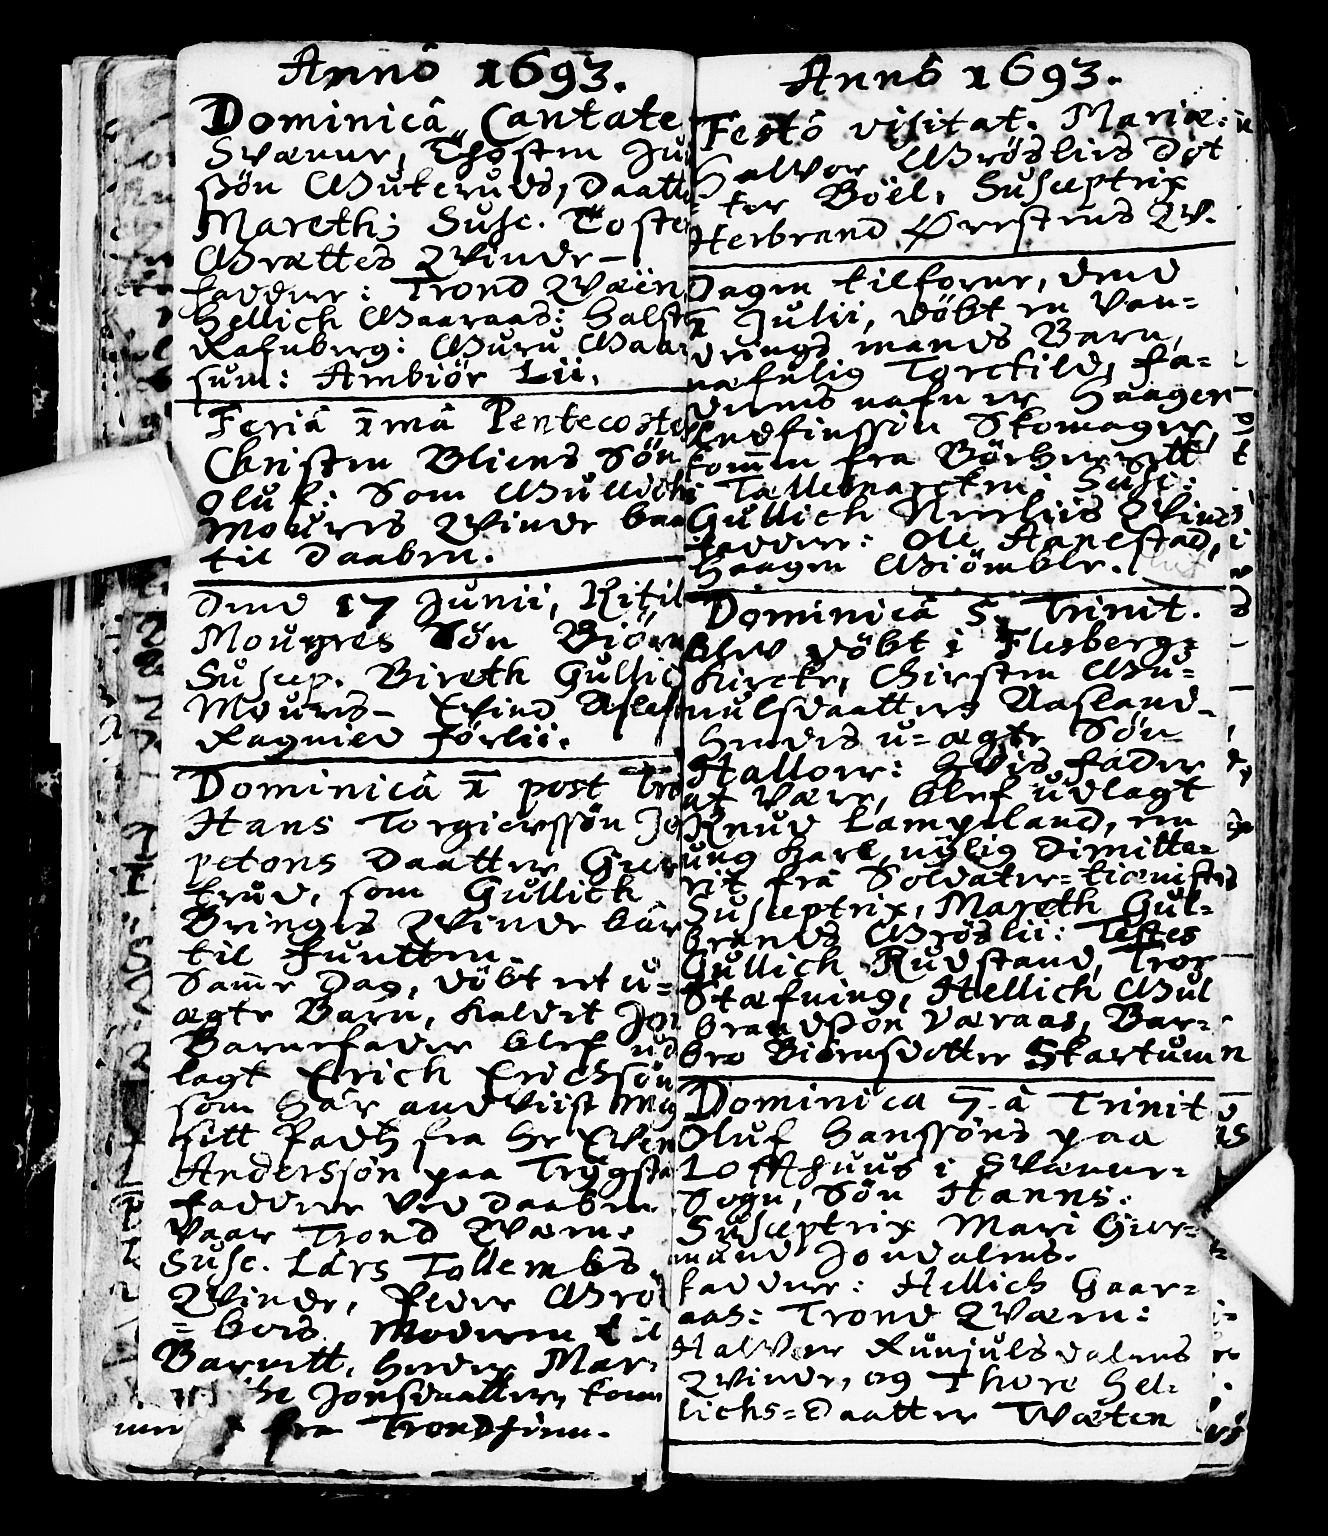 Annô 1693.
Dominicâ Cantate
Svenner, Thosten Ju
ssön Gukeruds, Daatt
Mareth; Susc. Toste
Grættes Qvinde -
faddere: Trond Qvæen
Hellich Gaaraas: Halst
Rafnberg: Guru Gaa
sum: Ambiör Lii.
Feriâ 1mâ Pentecoste
Christen Bliens Sön
Oluf: Som Gullich
Moures Qvinde baa
til Daaben.
Dend 17 Junii, Kitil
Moures Sön Biör
Suscep. Bireth Gullic
Mouris - Evind Asles
Ragnild förlii.
Dominicâ 1 post Tri
Hans Torgierssön Jo
petons Daatter Gier
trud, som Gullich
Bringes Qvinde bar
til funtten.
Same Dag, döbt et u=
ægte Barn, kaldet Jon
Barnefader blef ud
lagt Erich Erichsön
som har andviist
sitt fra Hr Even
Anderssön paa Trygsta
faddere ved Daaben
vaar Trond Qvæen.
Susc. Lars Tollembs
Qvinde, Peder Grö
= bers. Moderen til
Barnett, heder Mar=
the Jonsdaatter, kom
fra Trondhiem.
Annô 1693.
Festô visitat. Mariæ:
Halvor Gröslies Dot
ter Böel. Susceptrix
Herbrand Ørrstens Qv.
Dagen tilforne, dend
1 Julii, döbt en Van=
drings mands Barn,
nafnlig Torckild, fa=
derens nafn er Haagen
Endfinssön Skomager,
kommen fra Böeherrett
i Tellemarcken: Susc:
Gullich Neerliis Qvinde
faddere: Ole Hanestad,
Haagen Giömble.
Dominicâ 5. Trinit.
blev döbt i Flesberg=
Kircke, Girsten Gu=
nulsdaatters Aasland-
hendes u=ægte Sön
Hallvor: Hvis fader
at være, blef udlagt
Knud Lampeland, en
ung karl, nylig Dimitte=
rit fra Soldater=tienisten
Susceptrix, Mareth Gul=
brands Gröslii: Testes
Gullich Rudstand, Tror
Stæfning, Hellich Gul
brandssön Væraas, Bar=
bro Biörnsdotter Skartum
Dominica 7. â Trinit
Oluf Hanssöns paa
Loffthuus i Svenne=
Sogn, Sön Hanns:
Susceptrix Mari Gier=
mund Jondalens.
faddere: Hellich Gaar=
aas: Trond Qvæen:
Halvor Runjulsdalens
Qvinde, og Thore Hel=
lichs=Daatter Wæten